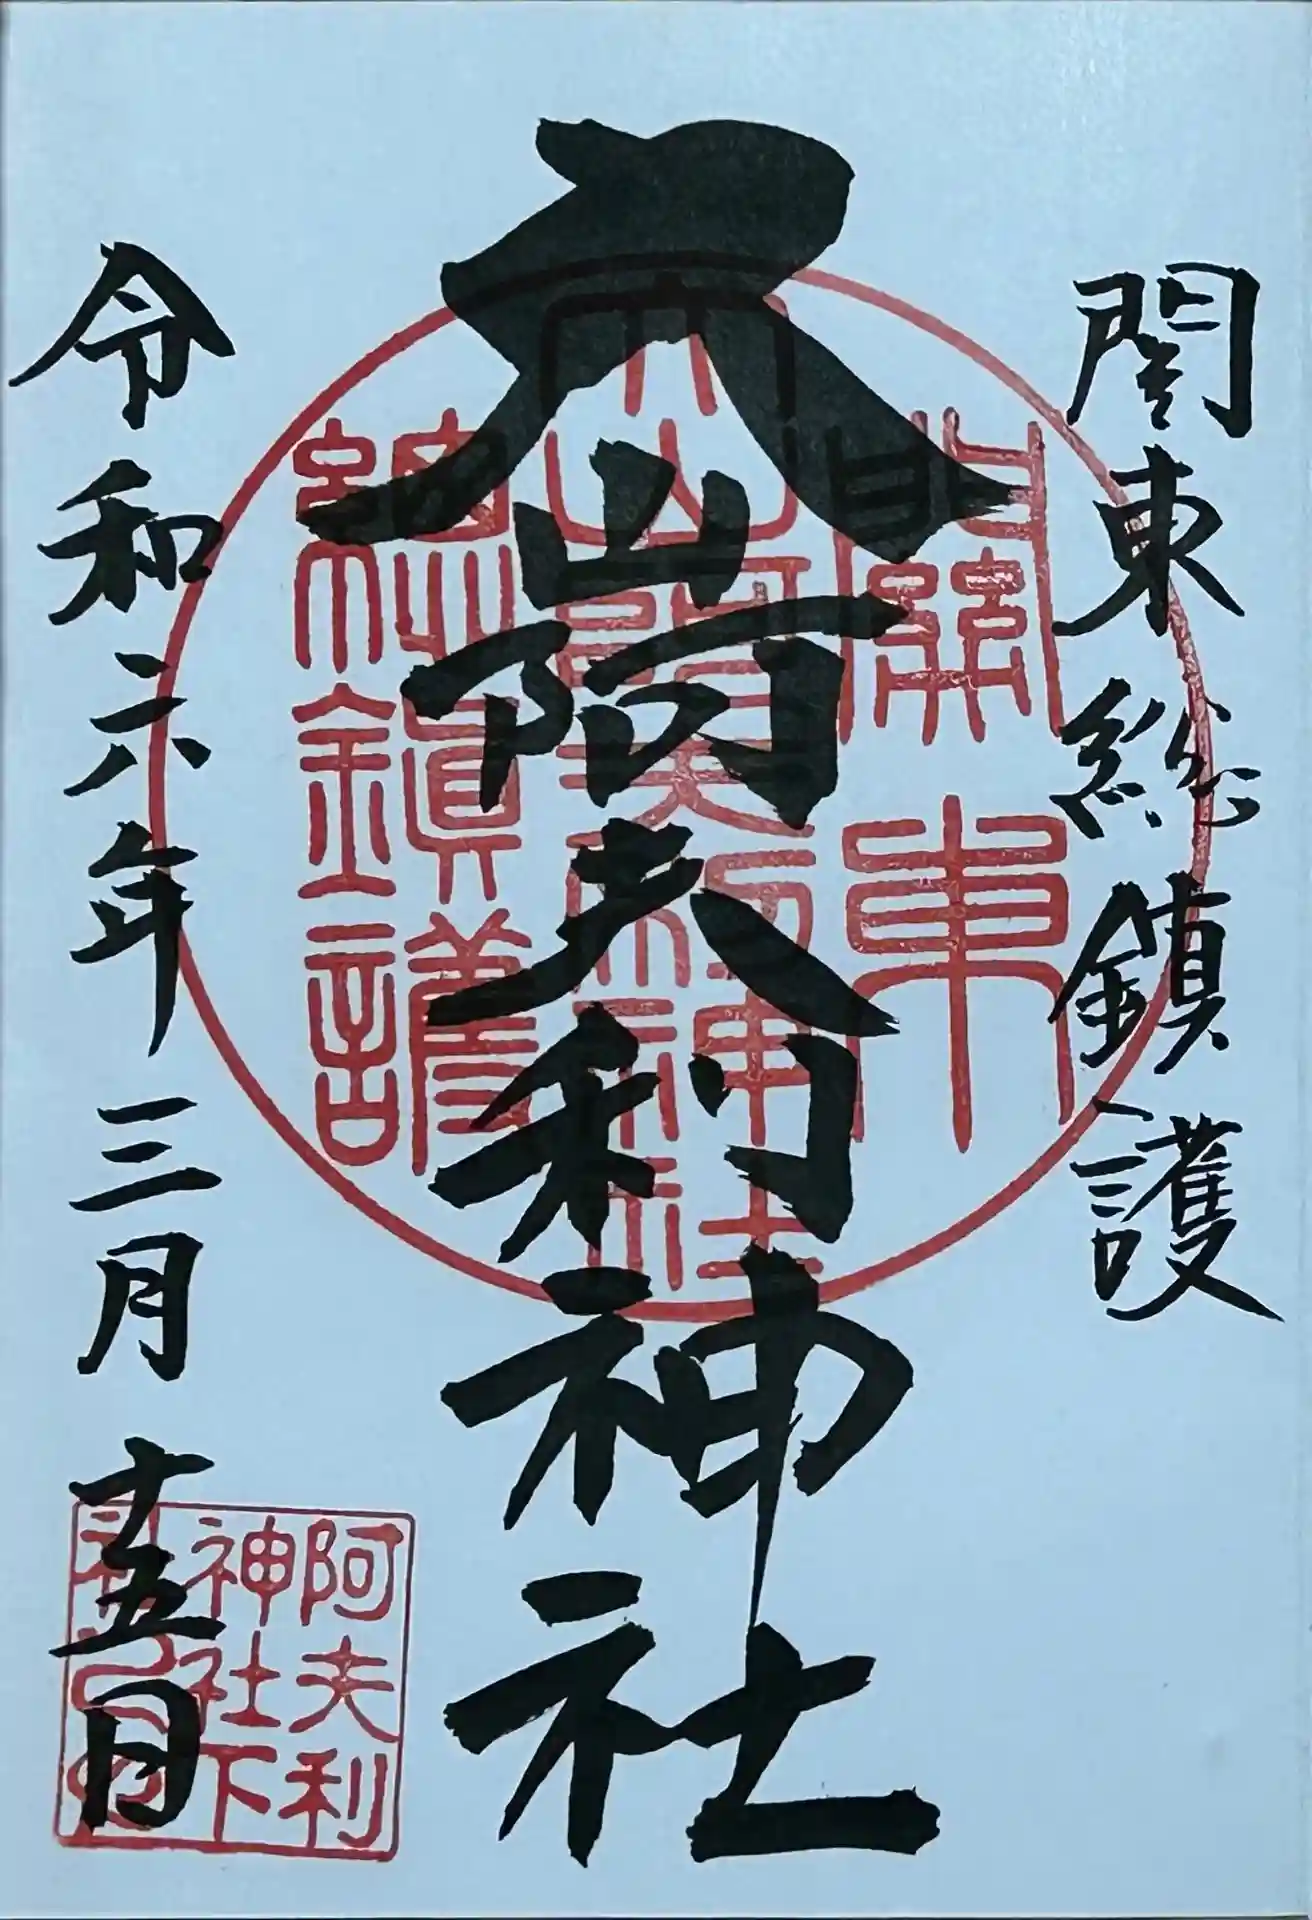 関東総鎮護
大山阿夫利神社
令和六年三月十五日
關東
大山阿夫利神社
總鎮護
阿夫利
神社下
社之印